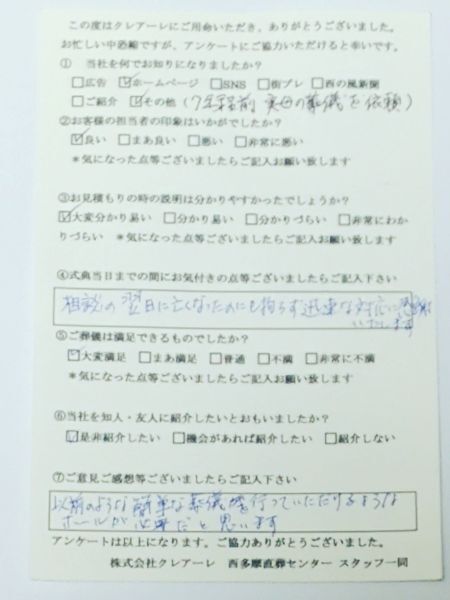 この度はクレアーレにご用命いただき、ありがとうございました。
お忙しい中恐縮ですが、アンケートにご協力いただけると幸いです。
① 当社を何でお知りになりましたか？
□広告 ☑ホームページ □SNS □街プレ □西の風新聞
□ご紹介 ☑その他（7年程前 実母の葬儀を依頼）
②お客様の担当者の印象はいかがでしたか？
☑良い □まあ良い □悪い □非常に悪い
＊気になった点等ございましたらご記入お願い致します
③お見積もりの時の説明は分かりやすかったでしょうか？
☑大変分かり易い □分かり易い □分かりづらい □非常にわか
りづらい ＊気になった点等ございましたらご記入お願い致します
④式典当日までの間にお気付きの点等ございましたらご記入下さい
相談の翌日に亡くなったのにも拘らず迅速な対応に感謝
いたします
⑤ご葬儀は満足できるものでしたか？
☑大変満足 □まあ満足 □普通 □不満 □非常に不満
＊気になった点等ございましたらご記入お願い致します
⑥当社を知人・友人に紹介したいとおもいましたか？
☑是非紹介したい □機会があれば紹介したい □紹介しない
⑦ご意見ご感想等ございましたらご記入下さい
以前のような簡単な葬儀を行っていただけるような
ホールが必要だと思います
アンケートは以上になります。ご協力ありがとうございました。
株式会社クレアーレ 西多摩直葬センター スタッフ一同